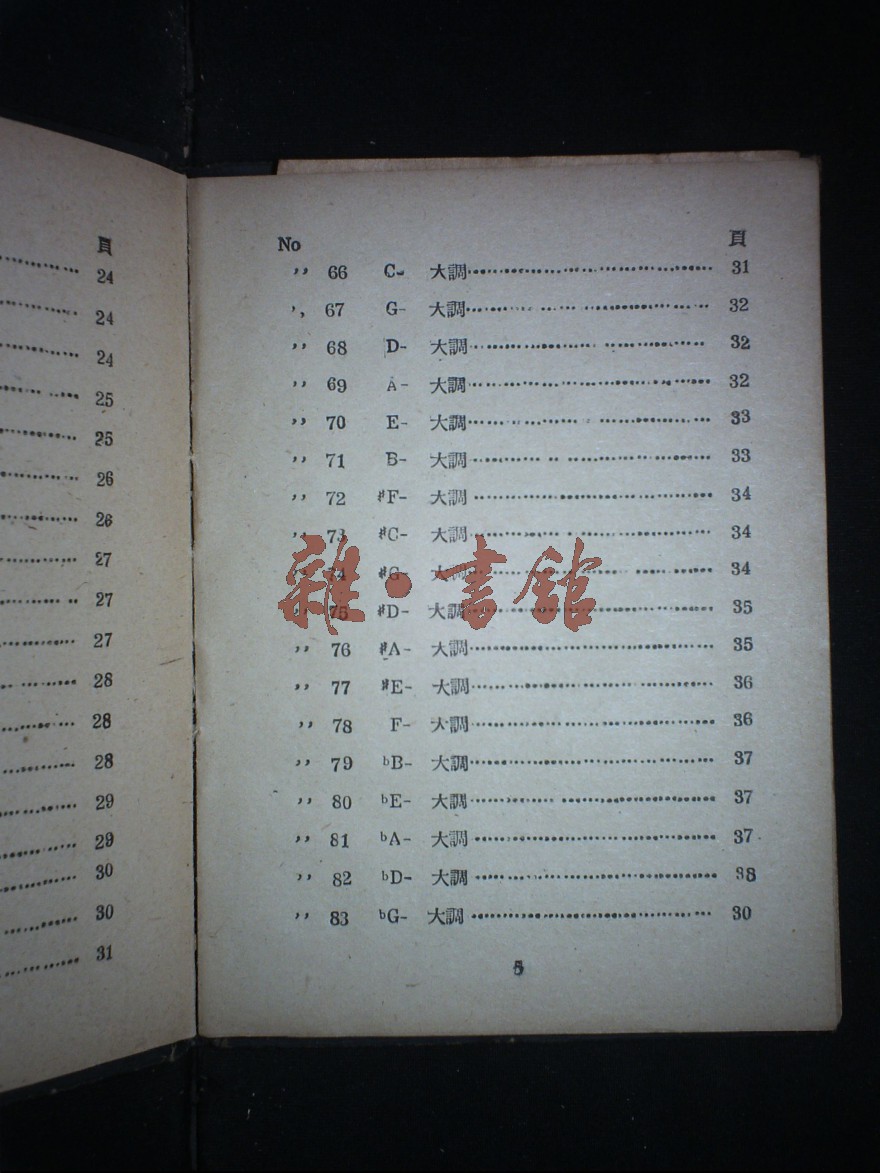 頁
24
24
24
25
25
26
26
27
27
27
28
28
28
29
29
30
30
31
No 頁
,, 66 C- 大調 31
,, 67 G- 大調 32
,, 68 D- 大調 32
,, 69 A- 大調 32
,, 70 E- 大調 33
,, 71 B- 大調 33
,, 72 #F- 大調 34
,, 73 #C- 大調 34
,, 74 #G- 大調 34
,, 75 #D- 大調 35
,, 76 #A- 大調 35
,, 77 #E- 大調 36
,, 78 F- 大調 36
,, 79 bB- 大調 37
,, 80 bE- 大調 37
,, 81 bA- 大調 37
,, 82 bD- 大調 38
,, 83 bG- 大調 30
5
雜·書館